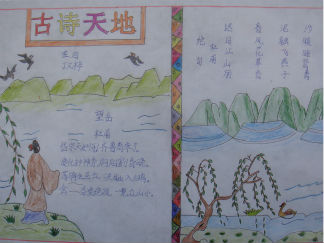 古诗天地
望岳
杜甫
岱宗夫如何,齐鲁青未了。
造化钟神秀,阴阳割昏晓。
荡胸生层云,决眦入归鸟。
会当凌绝顶,一览众山小。
绝句
杜甫
迟日江山丽
春风花草香
泥融飞燕子
沙暖睡鸳鸯